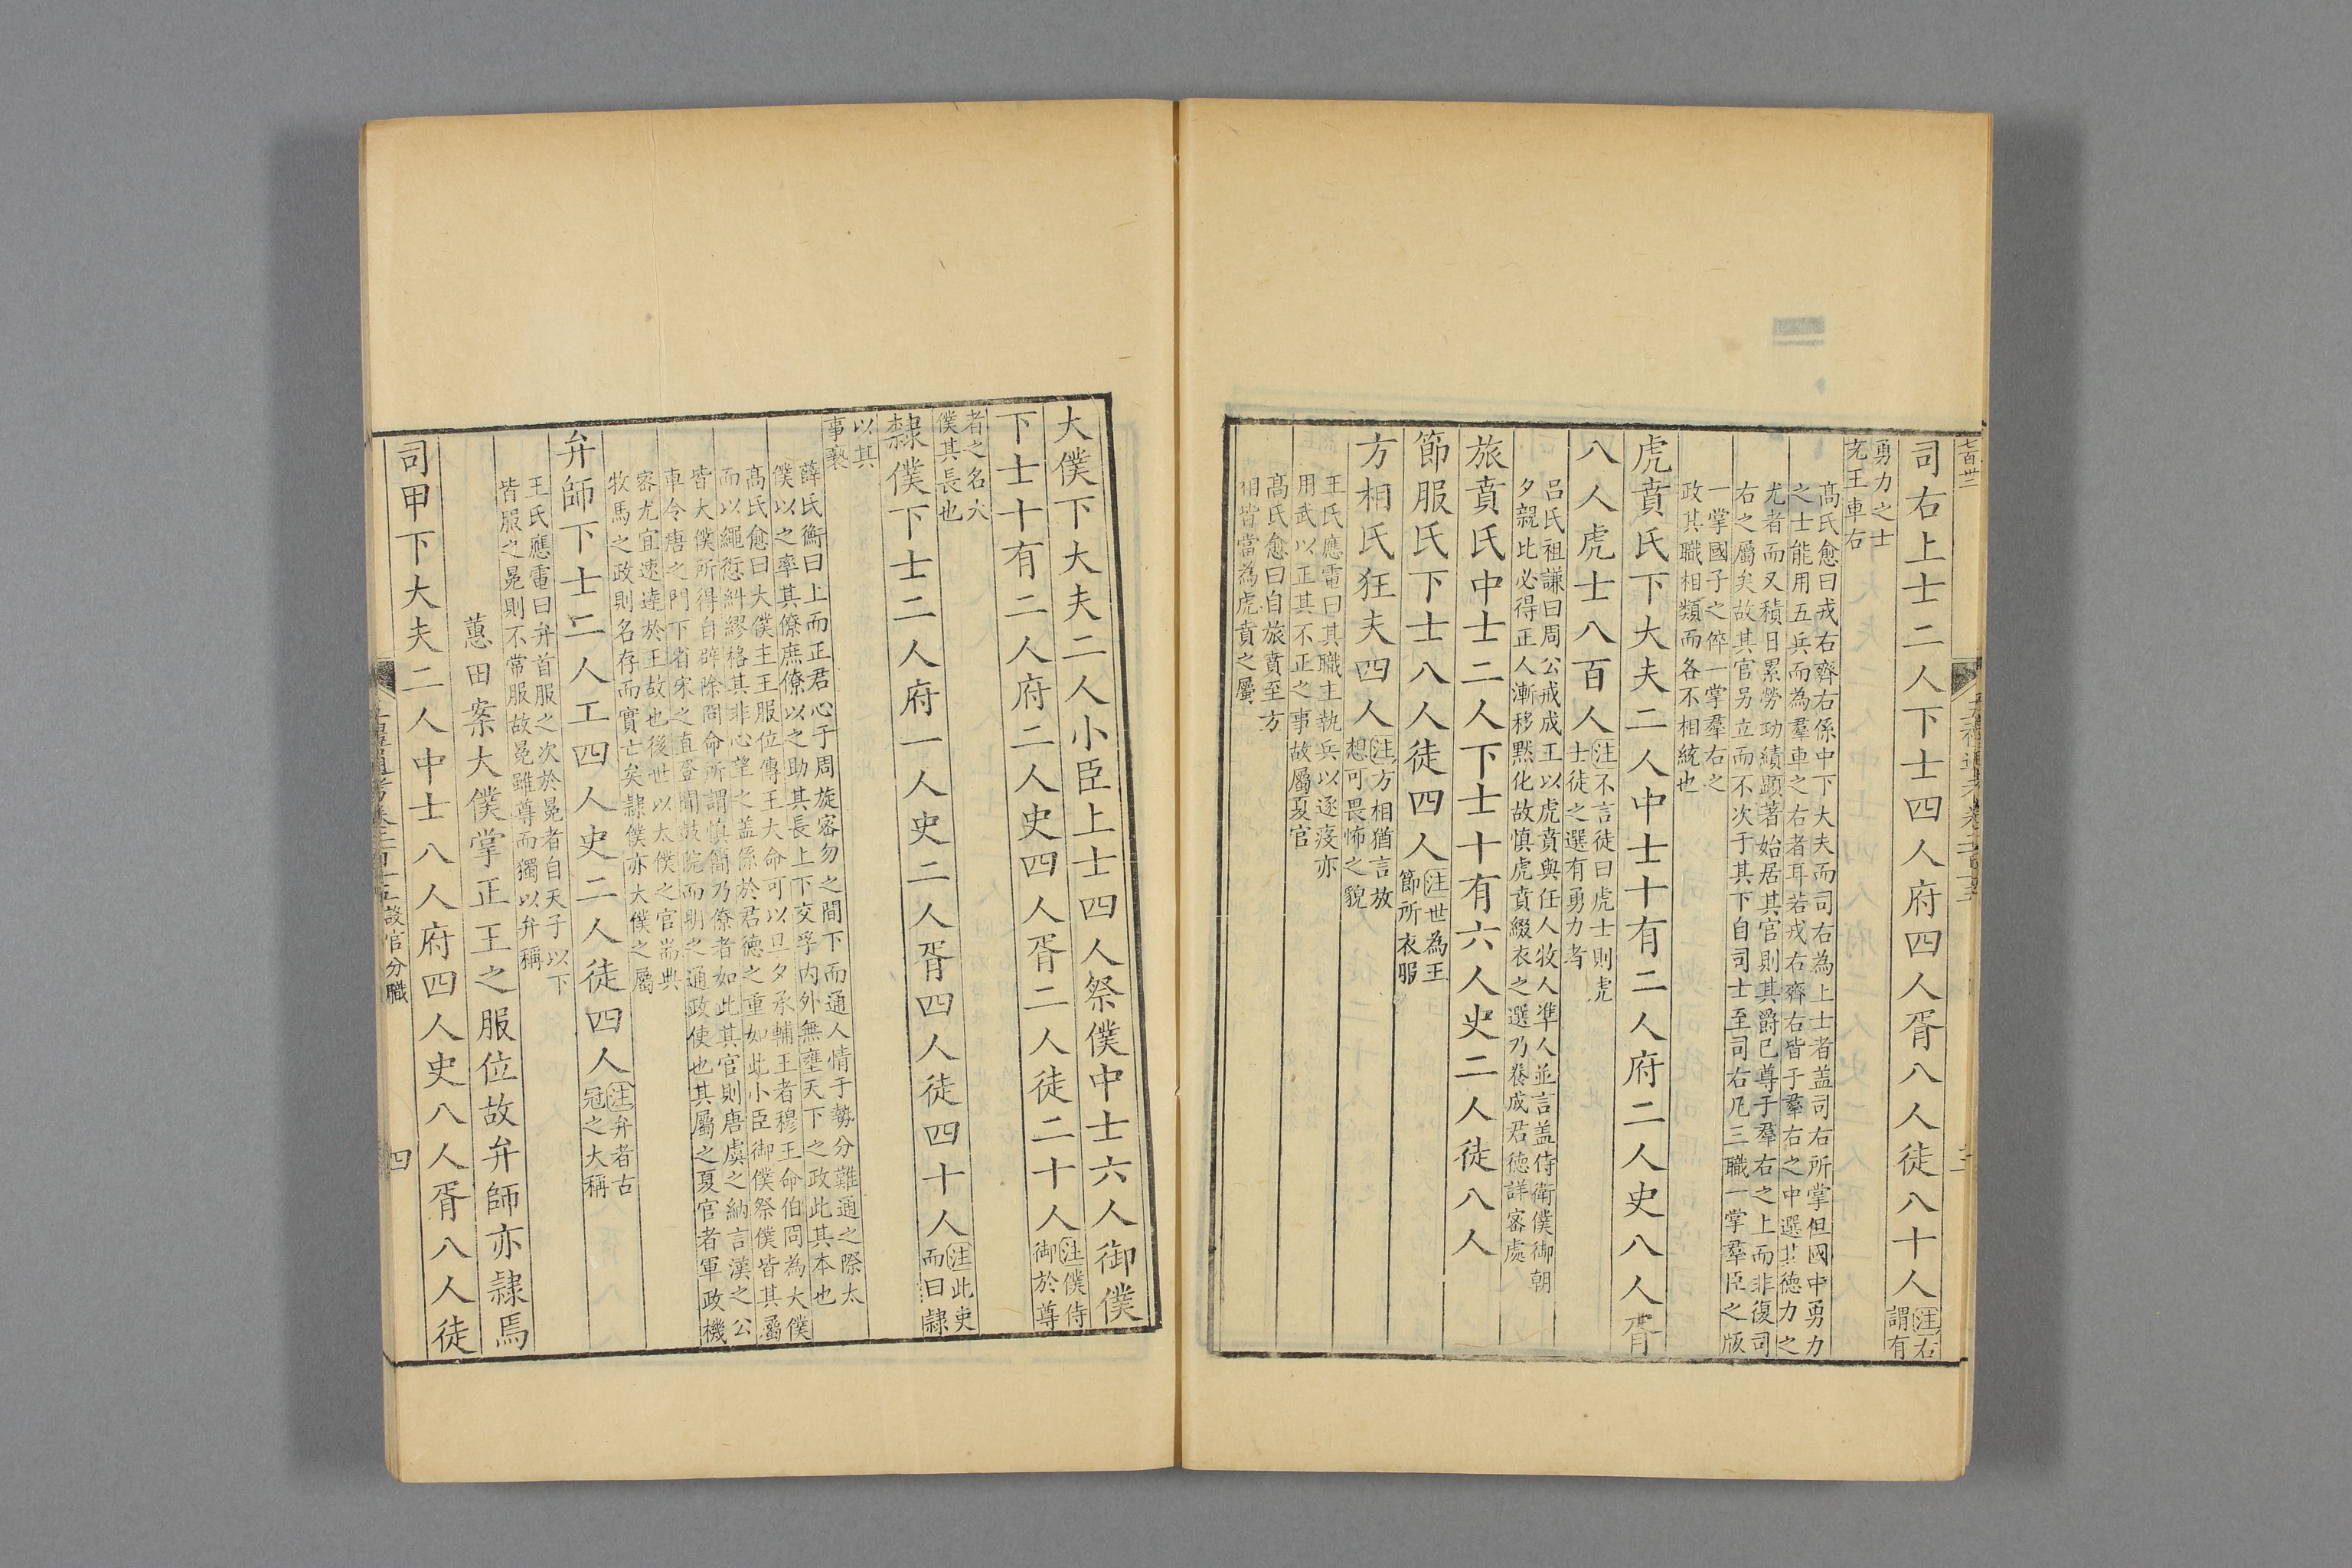 司右上士二人下士四人府四人胥八人徒八十人注右
謂有
勇力之士
充王車右
高氏愈曰戎右齊右係中下大夫而司右為上士者盖司右所掌但國中勇力
之士能用五兵而為羣車之右者耳若戎右齊右皆于羣右之中選其德力之
尤者而又積日累勞功績顯著始居其官則其爵已尊于羣右之上而非復司
右之屬矣故其官另立而不次于其下自司士至司右凡三職一掌羣臣之版
一掌國子之倅一掌羣右之
政其職相類而各不相統也
虎賁氏下大夫二人中士十有二人府二人史八人胥
八人虎士八百人注不言徒曰虎士則虎
士徒之選有勇力者
呂氏祖謙曰周公戒成王以虎賁與任人牧人準人並言盖侍衛僕御朝
夕親比必得正人漸移黙化故慎虎賁綴衣之選乃養成君德詳審處
旅賁氏中士二人下士十有六人史二人徒八人
節服氏下士八人徒四人注世為王
節所衣服
方相氏狂夫四人注方相猶言放
想可畏怖之貌
王氏應電曰其職主執兵以逐疫亦
用武以正其不正之事故屬夏官
高氏愈曰自旅賁至方
相皆當為虎賁之屬
大僕下大夫二人小臣上士四人祭僕中士六人御僕
下士十有二人府二人史四人胥二人徒二十人注僕侍
御於尊
者之名大
僕其長也
隸僕下士二人府一人史二人胥四人徒四十人注此吏
而曰隸
以其
事褻
薛氏衡曰上而正君心于周旋密勿之間下而通人情于勢分難通之際太
僕以之率其僚庶僚以之助其長上下交孚内外無壅天下之政此其本也
高氏愈曰大僕主王服位傳王大命可以旦夕承輔王者穆王命伯冏為大僕
而以繩愆糾繆格其非心望之盖係於君德之重如此小臣御僕祭僕皆其屬
皆大僕所得自辟除冏命所謂慎簡乃僚者如此其官則唐虞之納言漢之公
車令唐之門下省宋之直登聞鼓院而明之通政使也其屬之夏官者軍政機
密尤宜速達於王故也後世以太僕之官耑典
牧馬之政則名存而實亡矣隸僕亦大僕之屬
弁師下士二人工四人史二人徒四人注弁者古
冠之大稱
王氏應電曰弁首服之次於冕者自天子以下
皆服之冕則不常服故冕雖尊而獨以弁稱
蕙田案大僕掌正王之服位故弁師亦隷焉
司甲下大夫二人中士八人府四人史八人胥八人徒
五禮通考卷二百十五設官分職
四